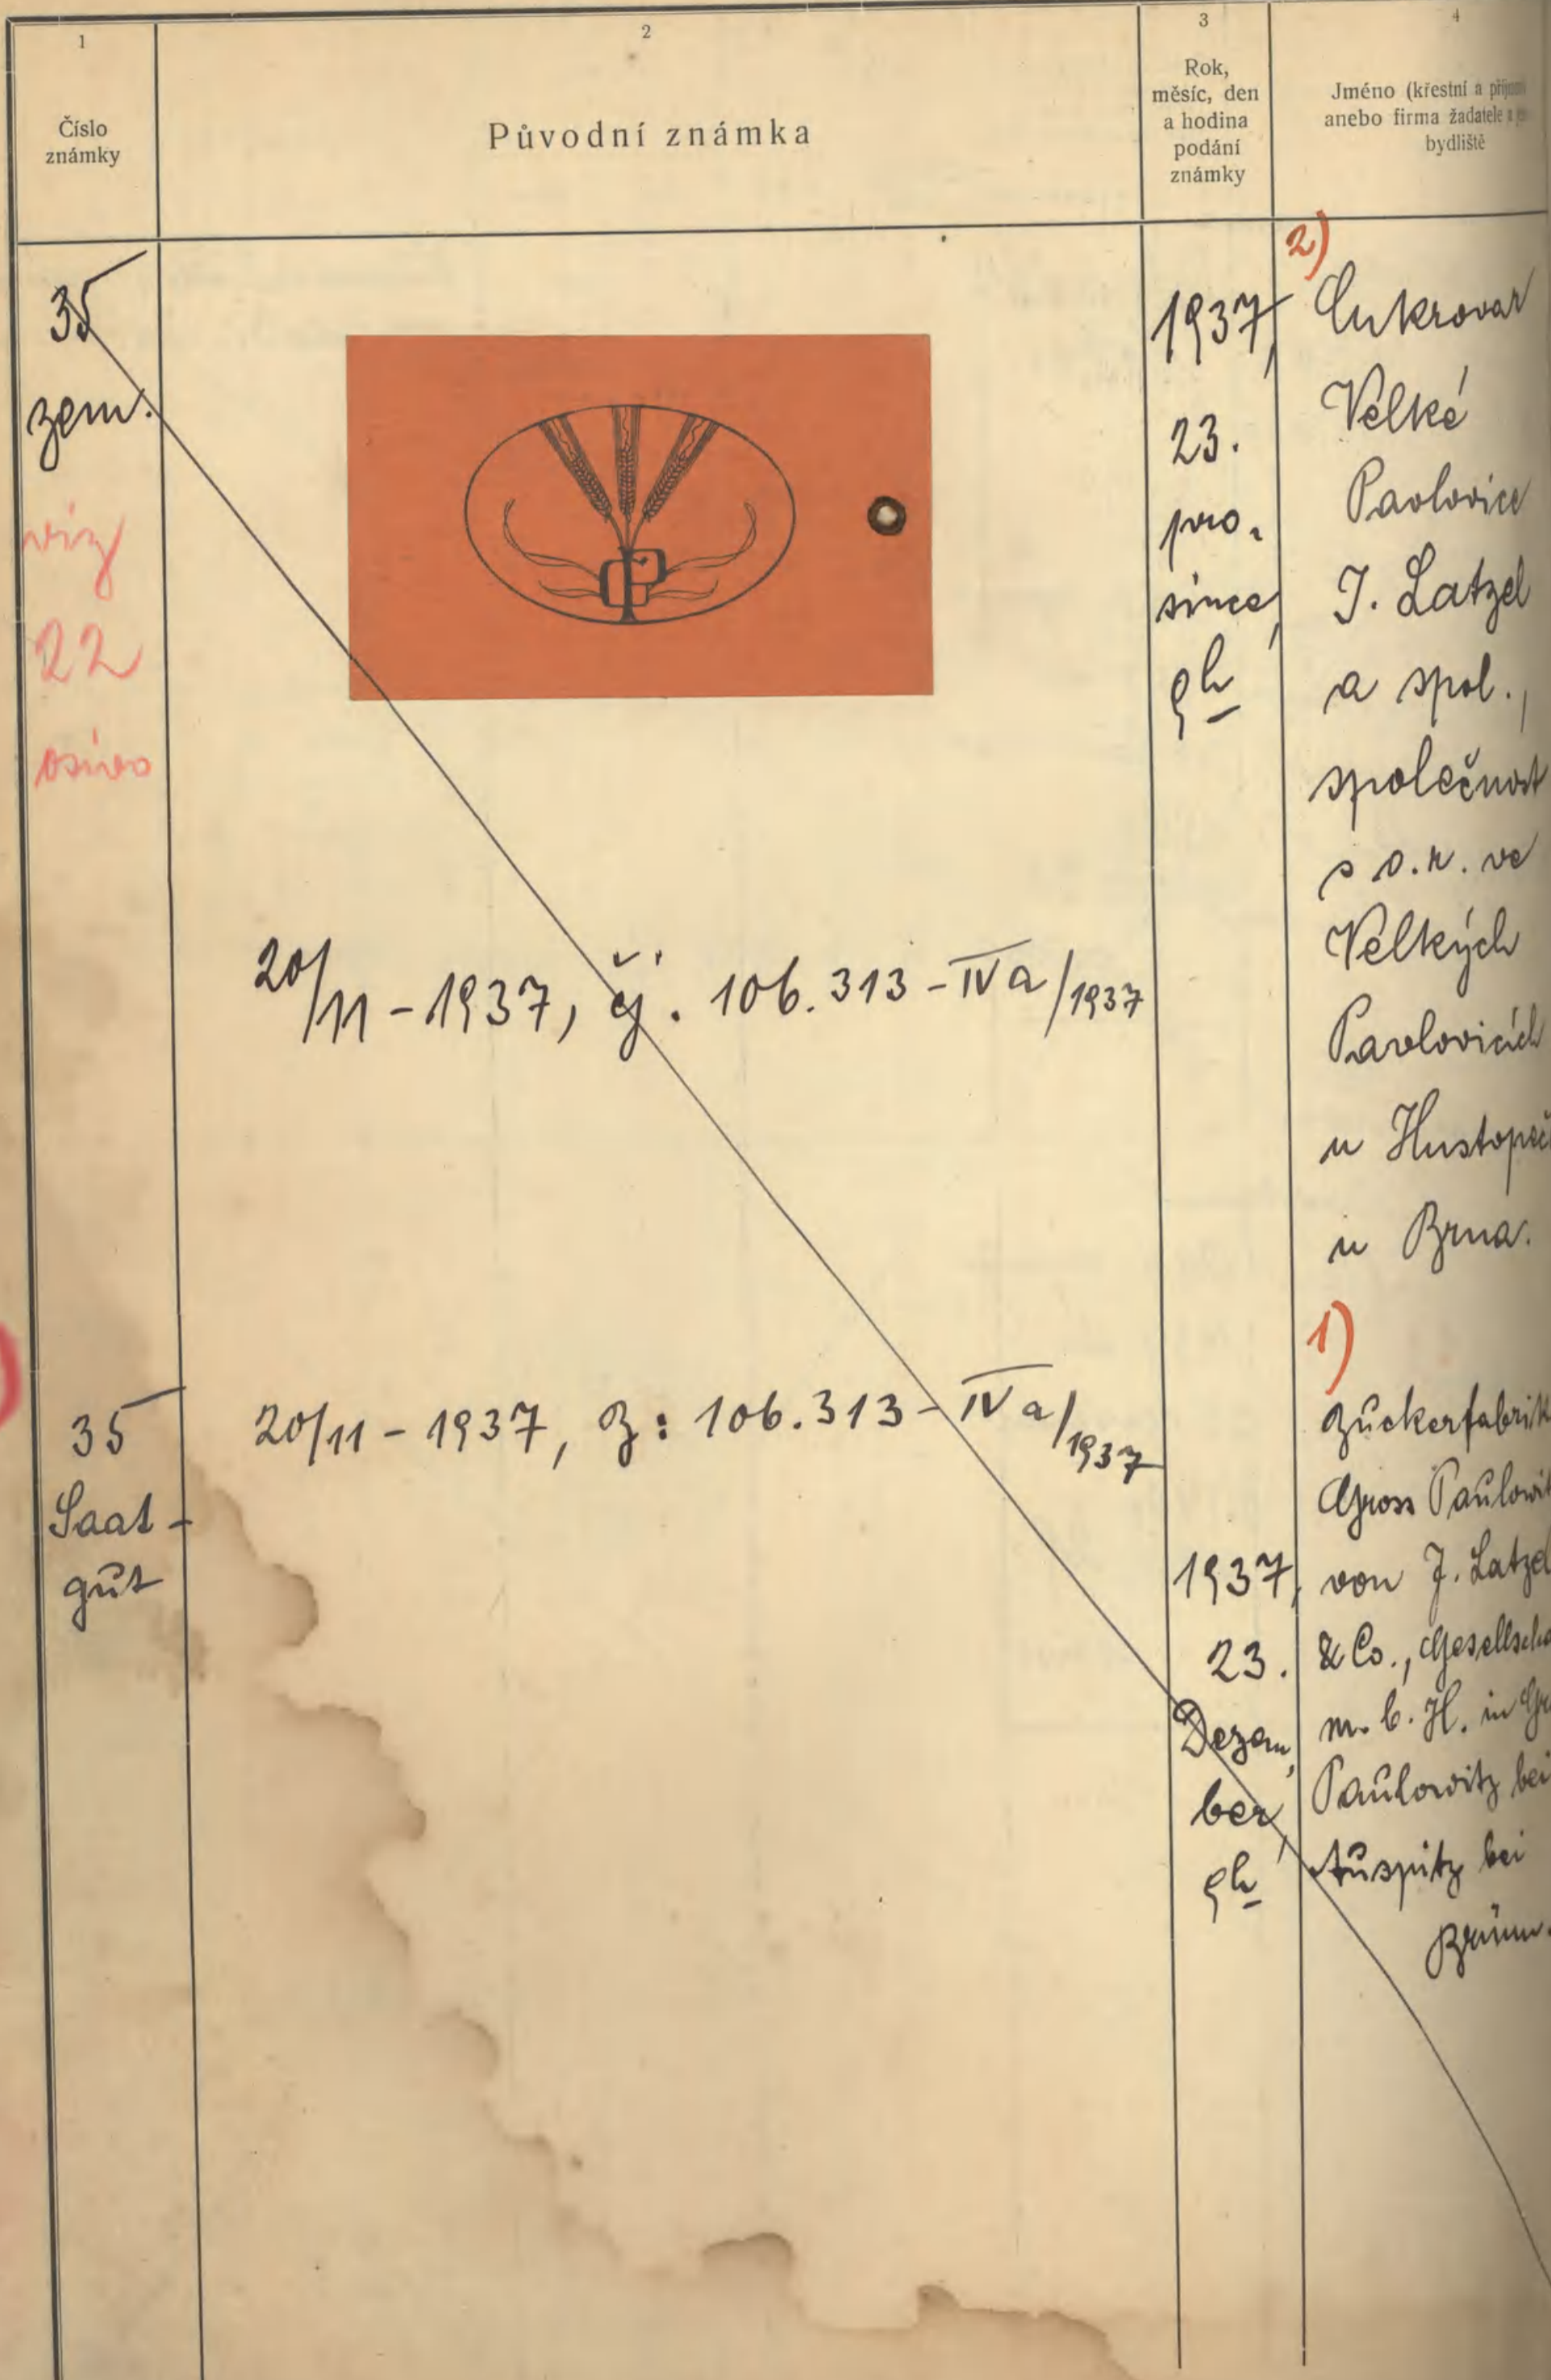 1
Číslo
známky
2
Původní známka
3
Rok,
měsíc, den
a hodina
podání
známky
4
Jméno (křestní a příjmení
anebo firma žadatele a
bydliště
35
zem.
viz
22
osivo
20/11 - 1937, čj. 106.313 - IVa/1937
1937,
23.
pro-
since,
9h
2)
Cukrovar
Velké
Pavlovice
J. Latzel
a spol.,
společnost
s o.r. ve
Velkých
Pavlovicích
u Hustopeč
u Brna.
35
Saat-
gut
20/11 - 1937, Z: 106.313 - IVa/1937
1937,
23.
Dezem,
ber,
9h
1)
Zuckerfabrik
Gross Paulowit
von J. Latzel
& Co., Gesellscha
m. b. H. in Gr
Paulowitz bei
Auspitz bei
Brünn.